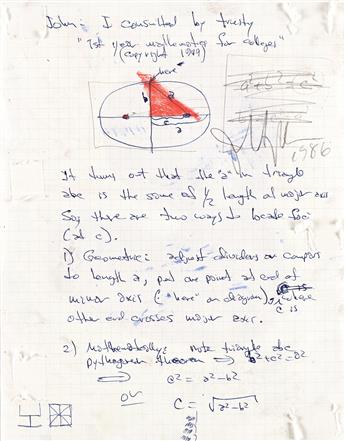 John: I consulted by trusty
"1st year mathematics for colleges"
(copyright 1949)
"here"
b
a
c
a
a² + b² = c²
1986
It turns out that the "a" in triangle
abc is the same as 1/2 length of major axis
So, there are two ways to locate foci
(at c).
1) Geometric: adjust dividers or compass
to length a, put one point at end of
minor axis ("here" on diagram), where
other end crosses major axis. c is
2) Mathematically: note triangle abc
pythagorean theorem ⇒ b²+c²=a²
⇒ c² = a²-b²
or c = √a²-b²